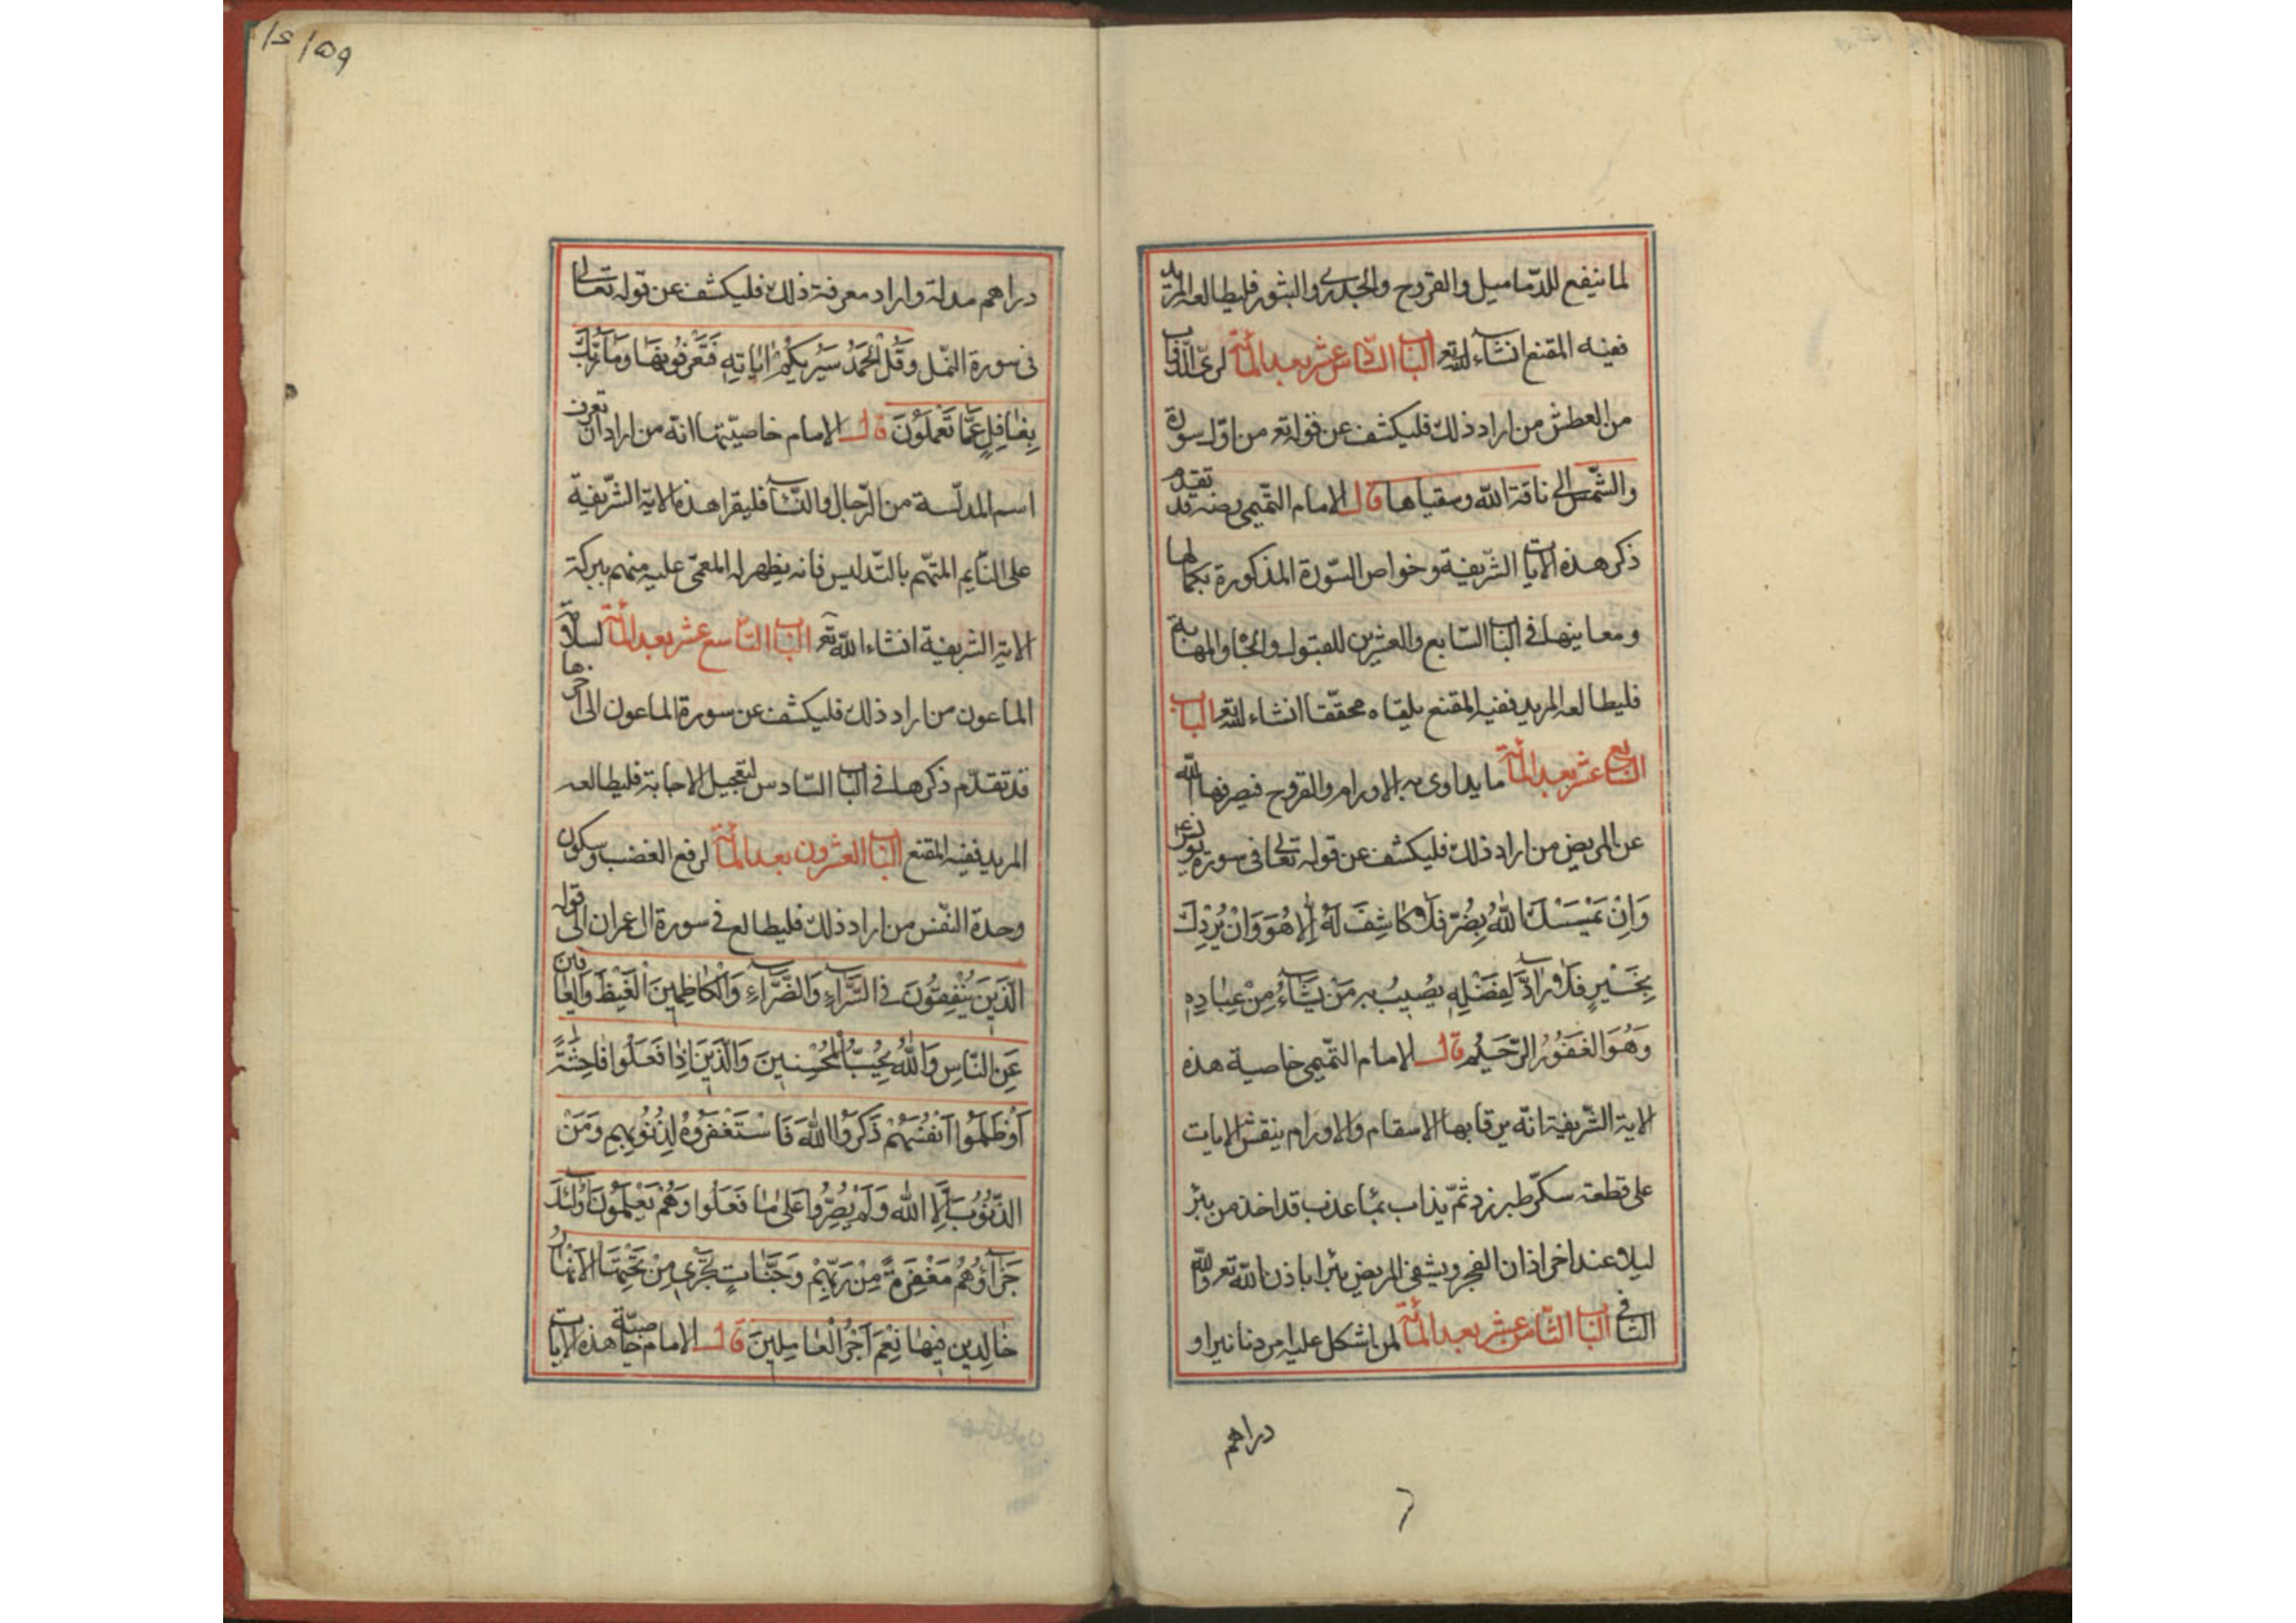 لما ينفع للدّماميل والقروح والجدرى والبثور فليطالعه المريد
ففيه المقنع انشاء الله تعر الباب السّادس عشر بعد المائة لرىّ الدّواب
من العطش من اراد ذلك فليكشف عن قوله تعر من اوّل سورة
والشّمس الى ناقة الله وسقياها قال الامام التّميمى رضه قد تقدم
ذكر هذه الايات الشّريفة وخواص السّورة المذكورة بكمالها
ومعاينها فى الباب السّابع والعشرين للقبول والجاه والمهابة
فليطالعه المريد ففيه المقنع يلقاه محقّقا انشاء الله تعر الباب
السّابع عشر بعد المائة ما يداوى به الاورام والقروح فيصرفها الله
عن المريض من اراد ذلك فليكشف عن قوله تعالى فى سورة يونس ع
وَاِنْ يَمْسَسْكَ اللهُ بِضُرٍّ فَلَا كَاشِفَ لَهُ اِلَّا هُوَ وَاِنْ يُرِدْكَ
بِخَيْرٍ فَلَا رَادَّ لِفَضْلِهِ يُصِيبُ بِهِ مَنْ يَشَاءُ مِنْ عِبَادِهِ
وَهُوَ الغَفُورُ الرَّحِيْمُ قال الامام التّميمى خاصية هذه
الاية الشّريفة انّه يرقا بها الاسقام والاورام ينقش الايات
على قطعة سكّر طبرزد ثمّ يذاب بماء عذب قد اخذ من بئر
ليلا عند اخر اذان الفجر ويشفى المريض يبرا باذن الله تعر والله
الشافى الباب الثّامن عشر بعد المائة لمن اشكل عليه امر دنانير او
دراهم
دراهم مدلسة واراد معرفة ذلك فليكشف عن قوله تعالى
فى سورة النّمل وَقُلِ الْحَمْدُ سَيُرِيكُمْ اٰيَاتِهِ فَتَعْرِفُونَهَا وَمَا رَبُّكَ
بِغَافِلٍ عَمَّا تَعْمَلُوْنَ قال الامام خاصيّتها انّه من اراد ان تعرف
اسم المدلّسة من الرّجال والنّساء فليقرا هذه الاية الشّريفة
على النّايم المتهّم بالتّدليس فانه يظهر له المعمّى عليه منهم ببركة
الاية الشريفة انشاء الله تعر الباب التّاسع عشر بعد المائة لسلامة
الماعون من اراد ذلك فليكشف عن سورة الماعون الى اخرها
قد تقدّم ذكرها فى الباب السّادس لتعجيل الاجابة فليطالعه
المريد ففيه المقنع الباب العشرون بعد المائة لرفع الغضب وسكون
وحدة النّفس من اراد ذلك فليطالع فى سورة ال عمران الى قوله
الَّذِينَ يُنْفِقُونَ فِى السَّرَّاءِ وَالضَّرَّاءِ وَالْكَاظِمِينَ الْغَيْظَ وَالْعَافِينَ
عَنِ النَّاسِ وَاللهُ يُحِبُّ الْمُحْسِنِينَ وَالَّذِينَ اِذَا فَعَلُوا فَاحِشَةً
اَوْ ظَلَمُوا اَنْفُسَهُمْ ذَكَرُوا اللهَ فَاسْتَغْفَرُوهُ لِذُنُوبِهِمْ وَمَنْ
الذُّنُوبَ اِلَّا اللهُ وَلَمْ يُصِرُّوا عَلَى مَا فَعَلُوا وَهُمْ يَعْلَمُونَ اُولٰئِكَ
جَزَاؤُهُمْ مَغْفِرَةٌ مِنْ رَبِّهِمْ وَجَنَّاتٌ تَجْرِى مِنْ تَحْتِهَا الْاَنْهَارُ
خَالِدِينَ فِيهَا نِعْمَ اَجْرُ الْعَامِلِينَ قال الامام خاصيّة هذه الايات